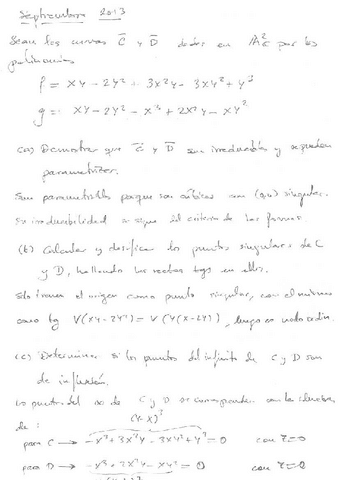 Septiembre 2013
Sean las curvas C̄ y D̄ dadas en A²C por los
polinomios
f = xy - 2y² + 3x²y - 3xy² + y³
g = xy - 2y² - x³ + 2x²y - xy²
(a) Demostrar que C̄ y D̄ son irreducibles y se pueden
parametrizar.
Son parametrizables porque son cúbicas singular.
Su irreducibilidad se sigue del criterio de las formas
(b) Calcular y clasificar los puntos singulares de C
y D, hallando las rectas tgs en ellos.
Solo tienen el origen como punto singular, con el mismo
cono tg V(xy-2y²) = V(y(x-2y)), luego es nodo ordin.
(c) Determinar si los puntos del infinito de C y D son
de inflexión.
Los puntos del ∞ de C y D se corresponden con las
de: (y-x)³
para C → -x³+3x²y-3xy²+y³=0 con z=0
para D → -x³+2x²y-xy²=0 con z=0